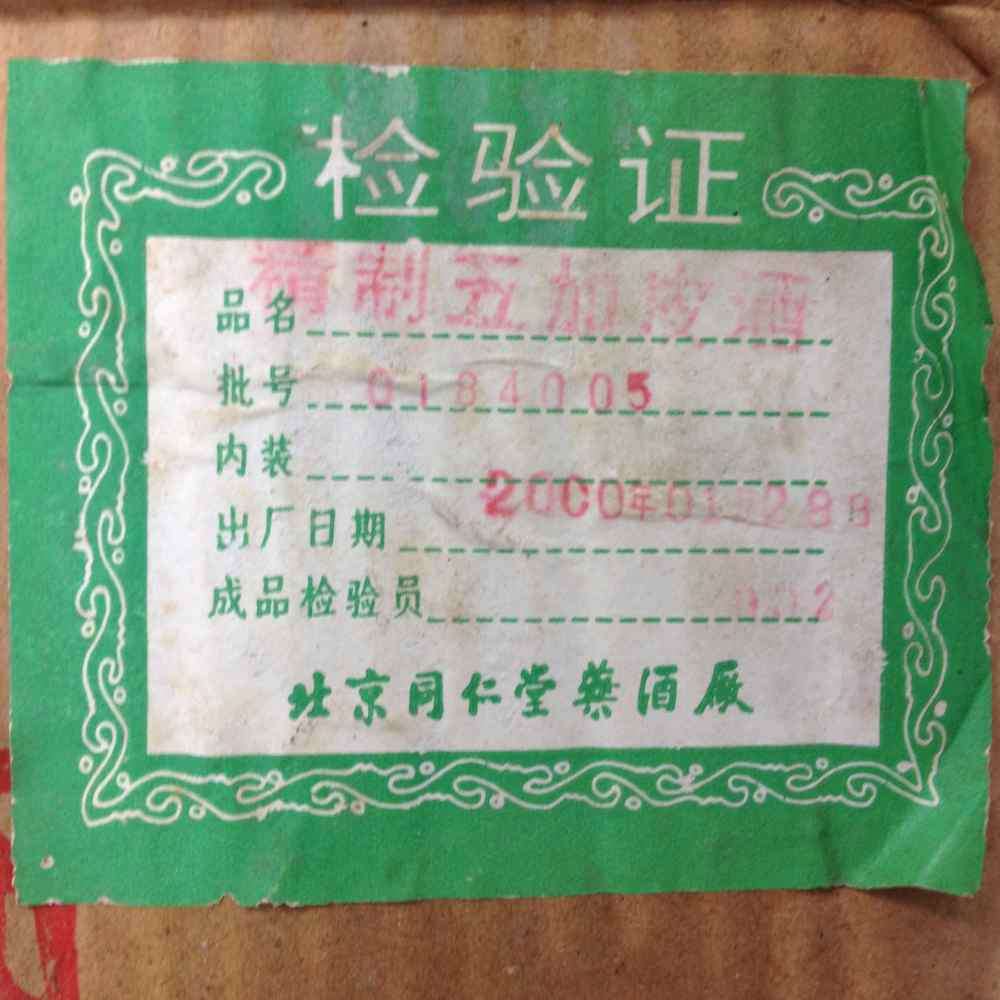 检验证
品名 精制五加皮酒
批号 0184005
内装
出厂日期 2000年01
成品检验员
北京同仁堂药酒厂